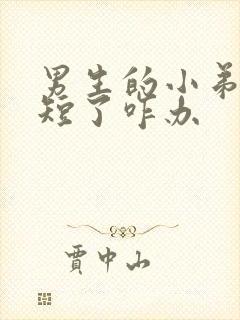 男生的小弟
短了咋办
贾中山